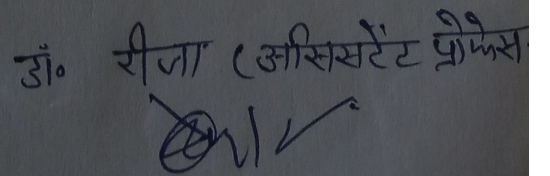 डॉ० रीजा (असिसटेंट प्रोफेस